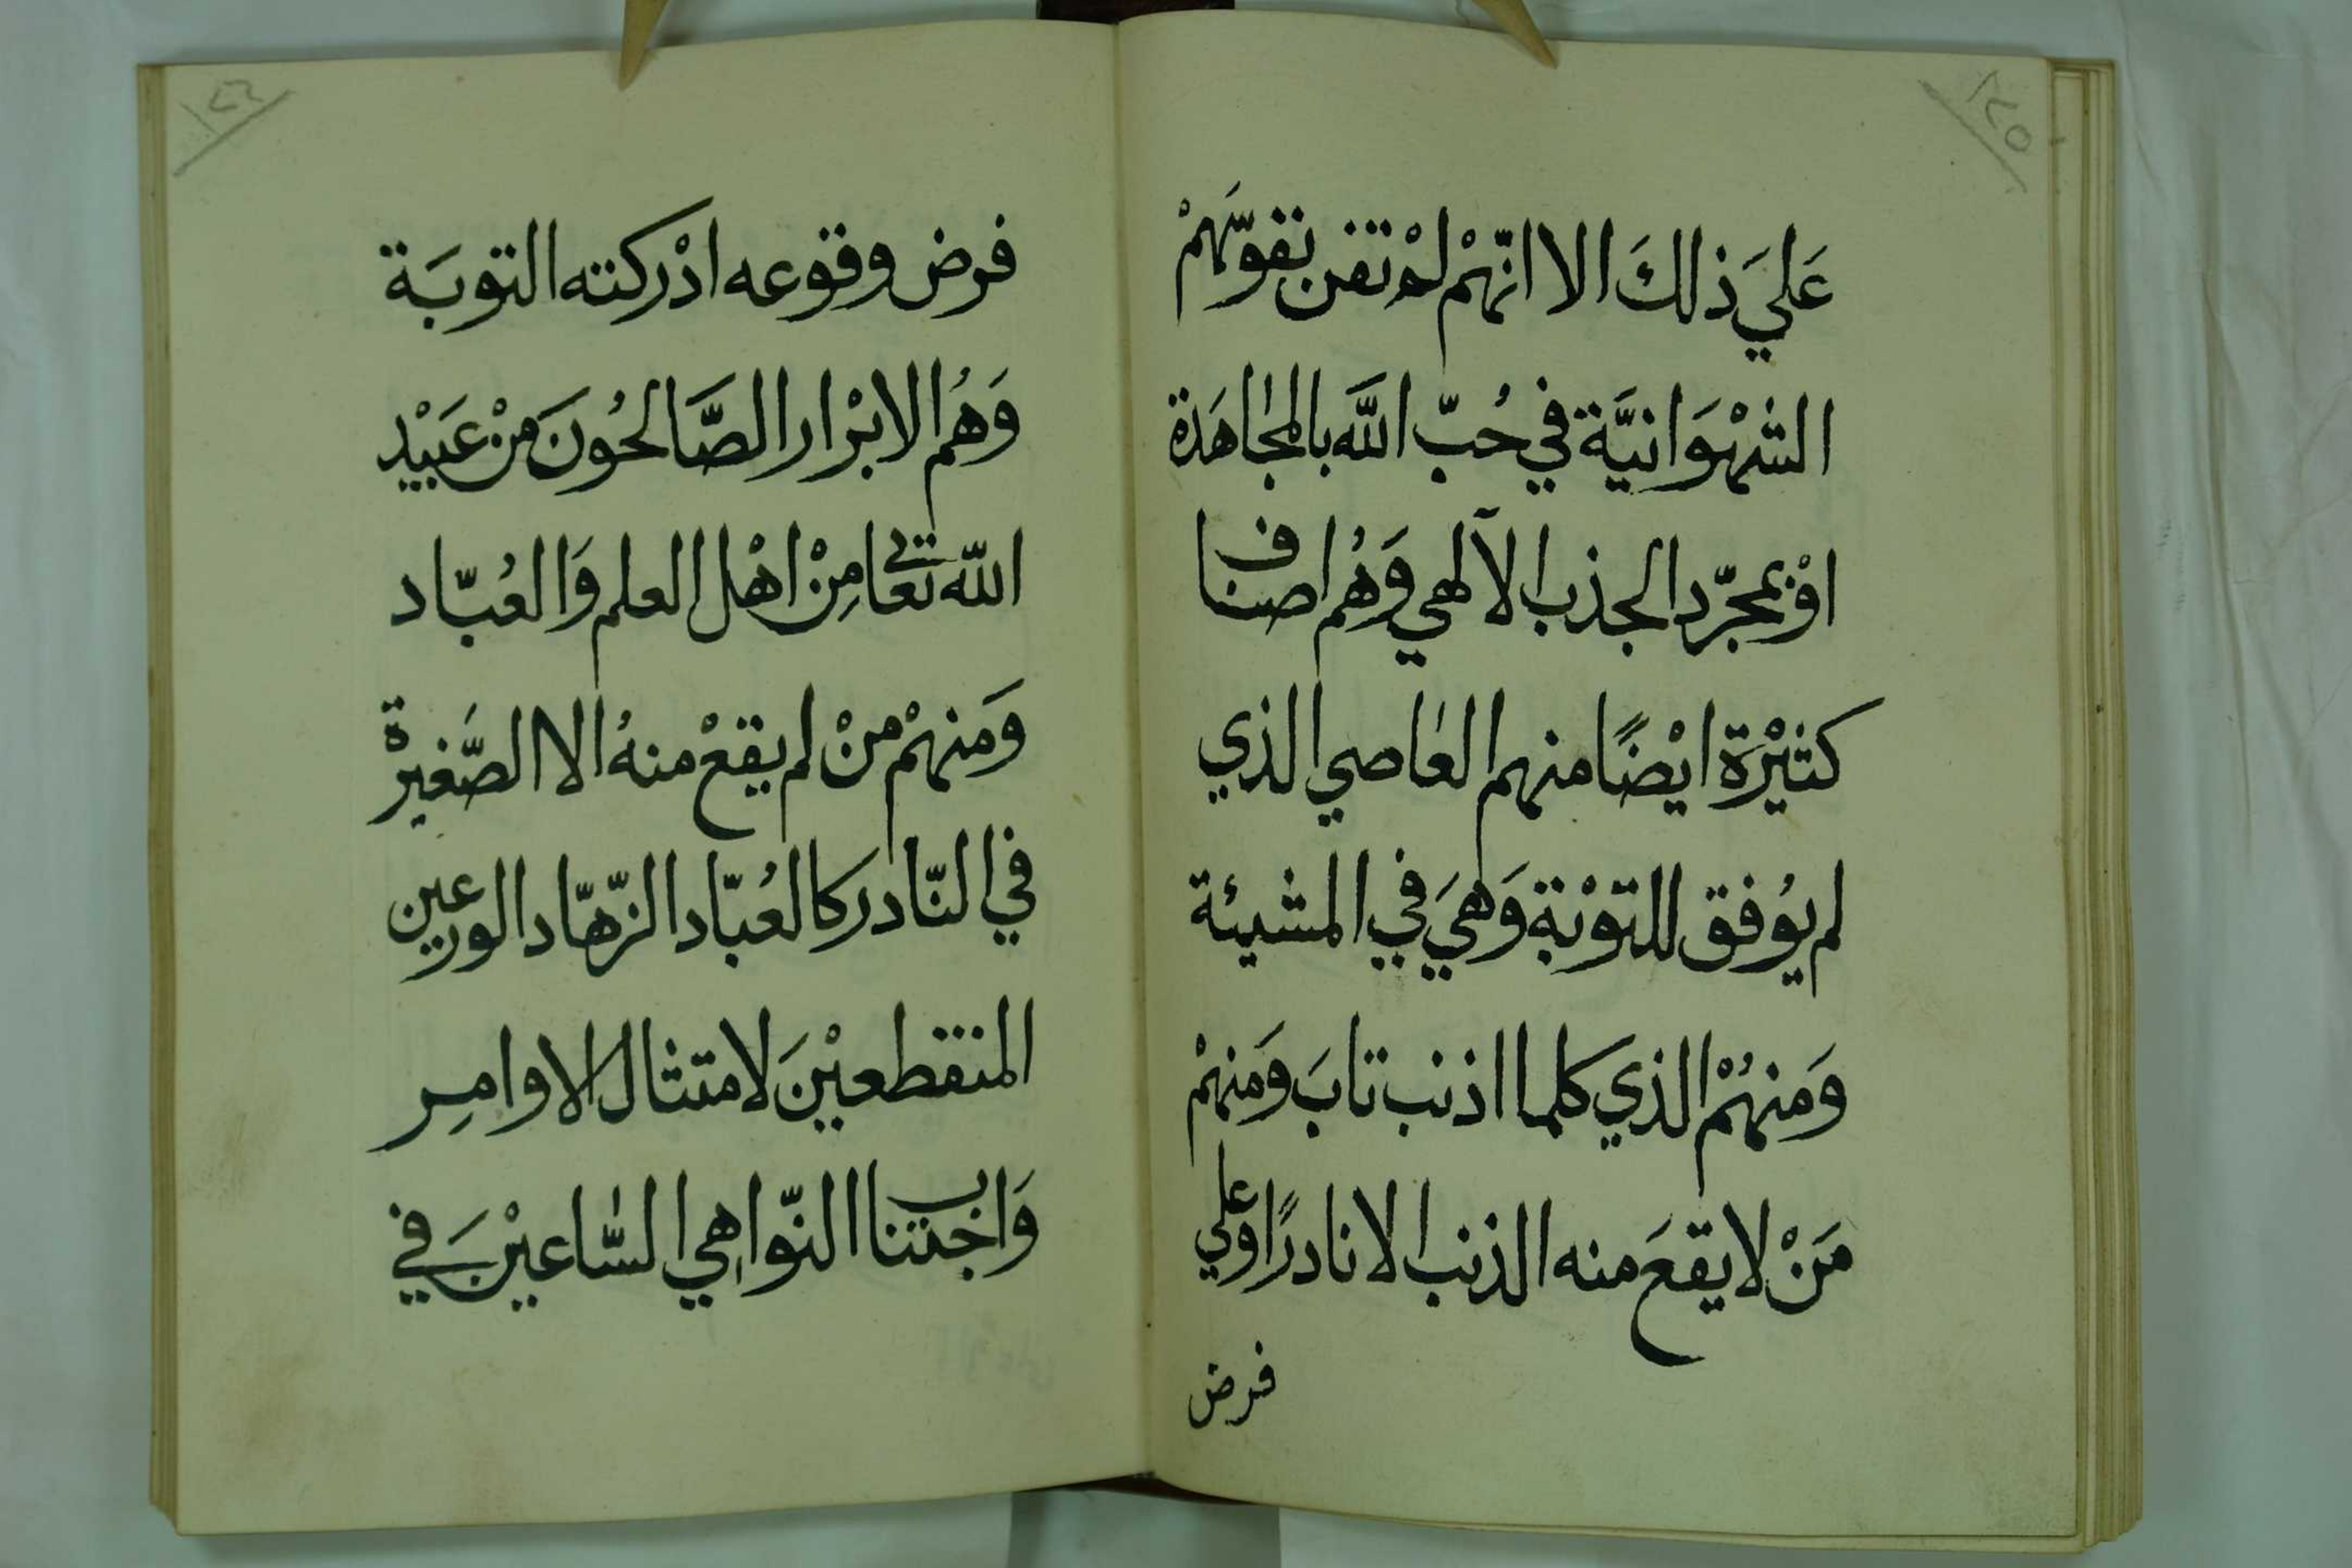 ٢٥
عَليَ ذلكَ الا انّهمْ لمْ تفن نفوسهمْ
الشهْوَانيَّة في حُبّ اللَّه بالمجاهَدة
اوْ بمجرّد الجذب الآلهي وَهُم اصناف
كثيْرَة ايْضًا منهم العاصي الذي
لم يوُفق للتوْبَة وَهيَ في المشيئة
وَمنهُمْ الذي كلما اذنب تابَ وَمنهمْ
مَنْ لا يقعَ منه الذنب الا نادرًا وعلي
فرض
٢٦
فرض وقوعه ادْركته التوبَة
وَهُم الابْرار الصَّالحُونَ منْ عَبيْد
اللّه تعَالى مِنْ اهْل العلم وَالعُبّاد
وَمنهمْ منْ لم يقعْ منهُ الا الصَّغيرْة
في النّادر كالعُبّاد الزّهّاد الورعين
المنقطعيْنَ لامتثال الاوامِر
وَاجتناب النّواهي السَّاعيْنَ في